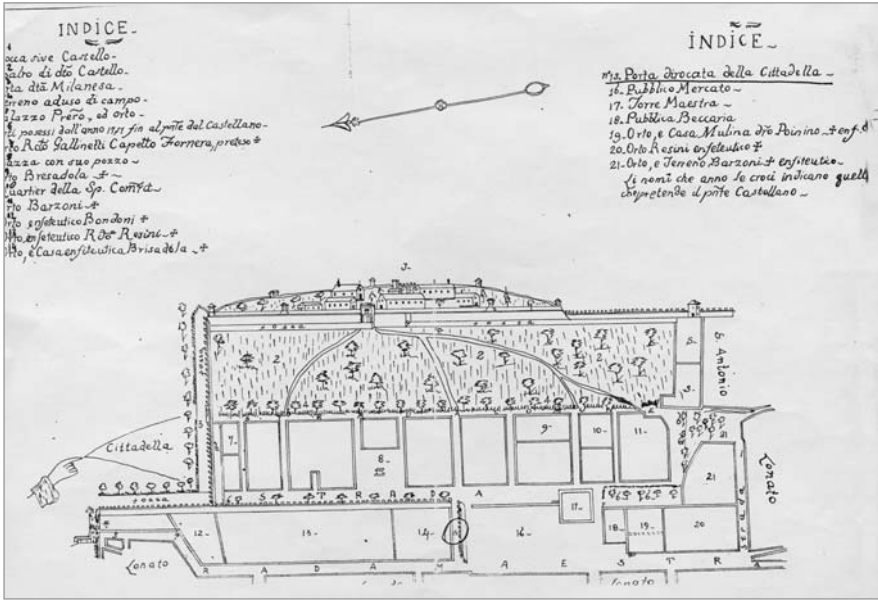 INDICE.
1
2
3
4
5
6
7
8
9
10
11
12
13
14
occa sive Castello.
albo di dto Castello.
rta dta Milanesa.
rreno aduso di campo.
lazzo Preto, ed orto.
ti posessi dall'anno fin al pnte dal Castellano.
Rdo Gallinelli Capetto Fornera, preteso +
azza con suo pozzo
to Bresadola +
uartier della Sp. Comtà.
rto Barzoni +
rto enfeteutico Bondoni +
rto, enfeteutico Rdo Resini +
rto, e Casa enfiteutica Brisadola +
INDICE
nº 15. Porta dirocata della Cittadella
16. Pubblico Mercato
17. Torre Maestra
18. Pubblica Beccaria
19. Orto, e Casa Mulina dto Poinino + enf. d
20. Orto Resini enfeteutico +
21. Orto, e Terreno Barzoni + enfiteutico
Li nomi che anno le croci indicano quelli
che pretende il pnte Castellano
3
FOSSA
FOSSA
2
2
2
5
S. Antonio
Cittadella
7
8
9
10
11
FOSSA
STRADA
17
21
Lonato
STRADA
12
13
14
16
18
19
20
Lonato
STRADA MAESTRA
Lonato